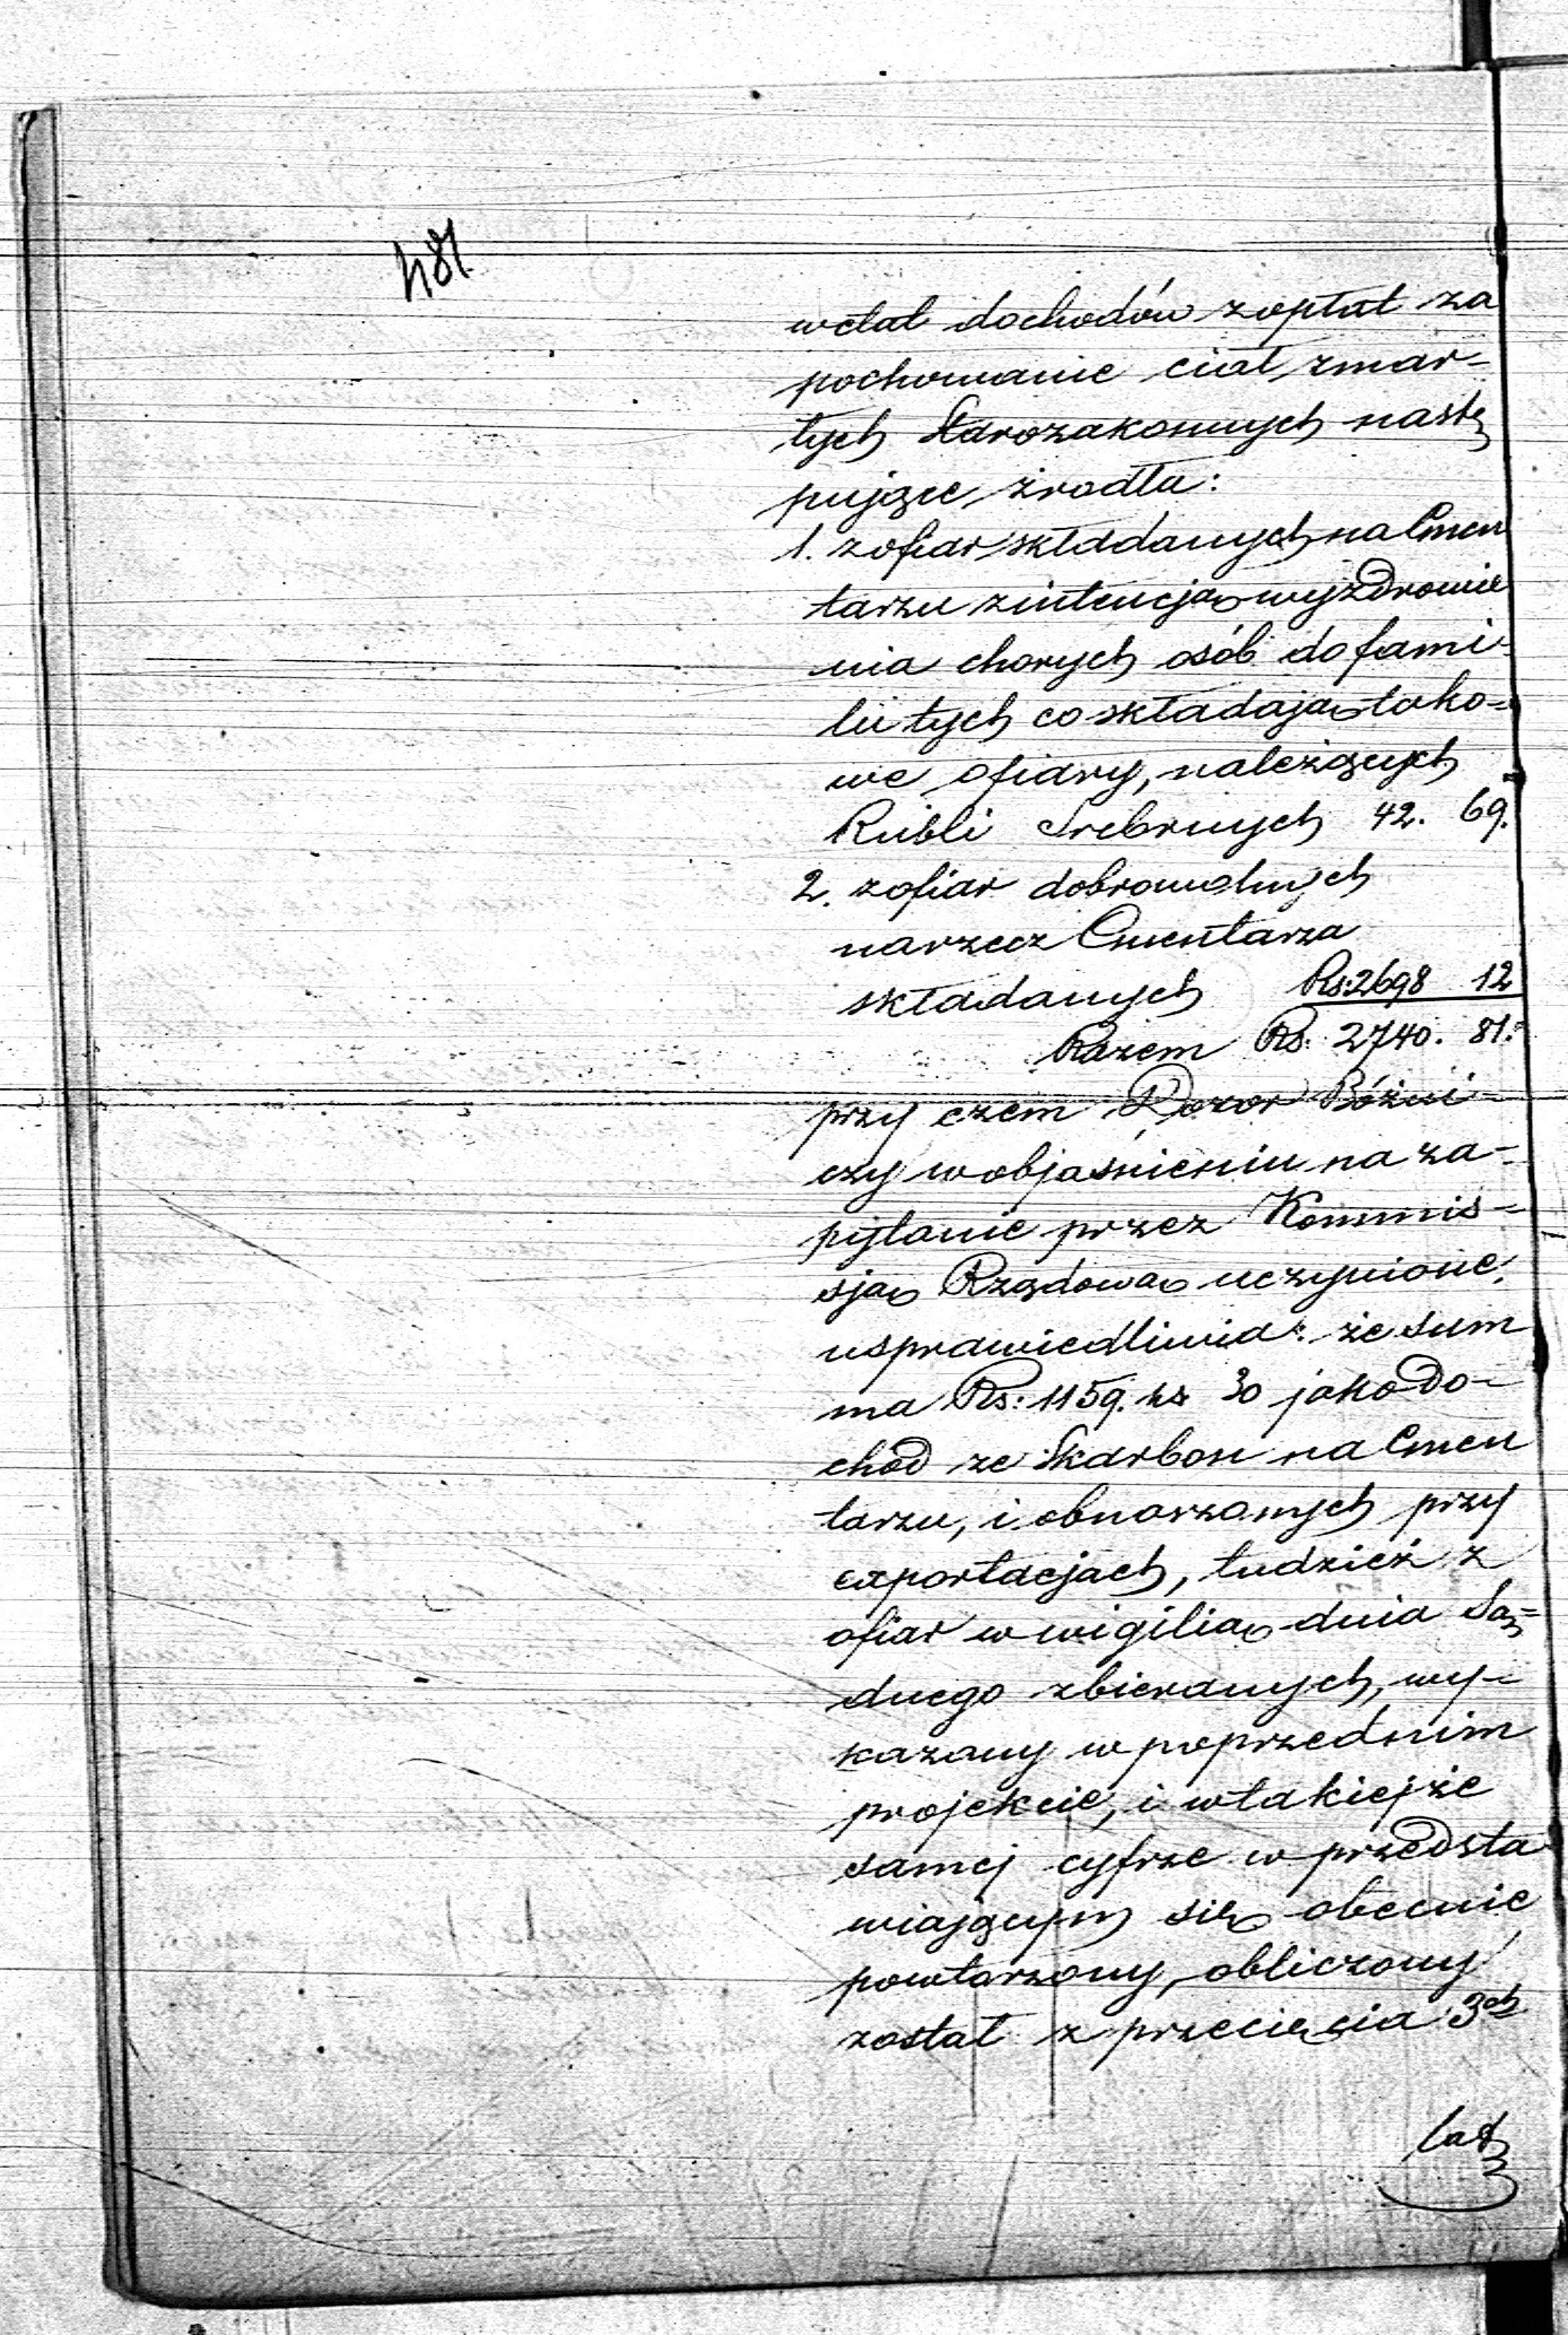 481.
wdał dochodów z opłat za
pochowanie ciał zmar-
łych Starozakonnych nastę
pujące źrodła:
1. z ofiar składanych na Cmen
tarzu z intencją wyzdrowie
nia chorych osób do fami-
lii tych co składają tako-
we ofiary, należących
Rubli Srebrnych 42. 69.
2. z ofiar dobrowolnych
na rzecz Cmentarza
składanych Rs: 2698 12
Razem Rs: 2740. 81.
przy czem Dozor Bóżni-
czy w objaśnieniu na za-
pytanie przez Kommis-
sją Rządową uczynione,
usprawiedliwia: że sum
ma Rs: 1159. ks 30 jako do-
chod ze Skarbon na Cmen
tarzu, i obnaszanych przy
exportacjach, tudzież z
ofiar w wigilią dnia Są-
dnego zbieranych, wy-
kazany w poprzednim
projekcie, i w takiejże
samej cyfrze w przedsta
wiającym się obecnie
powtorzony, obliczony
został z przecięcia 3ch
lat